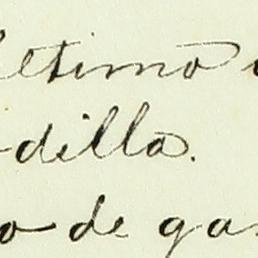 ltimo
dilla.
o de gas